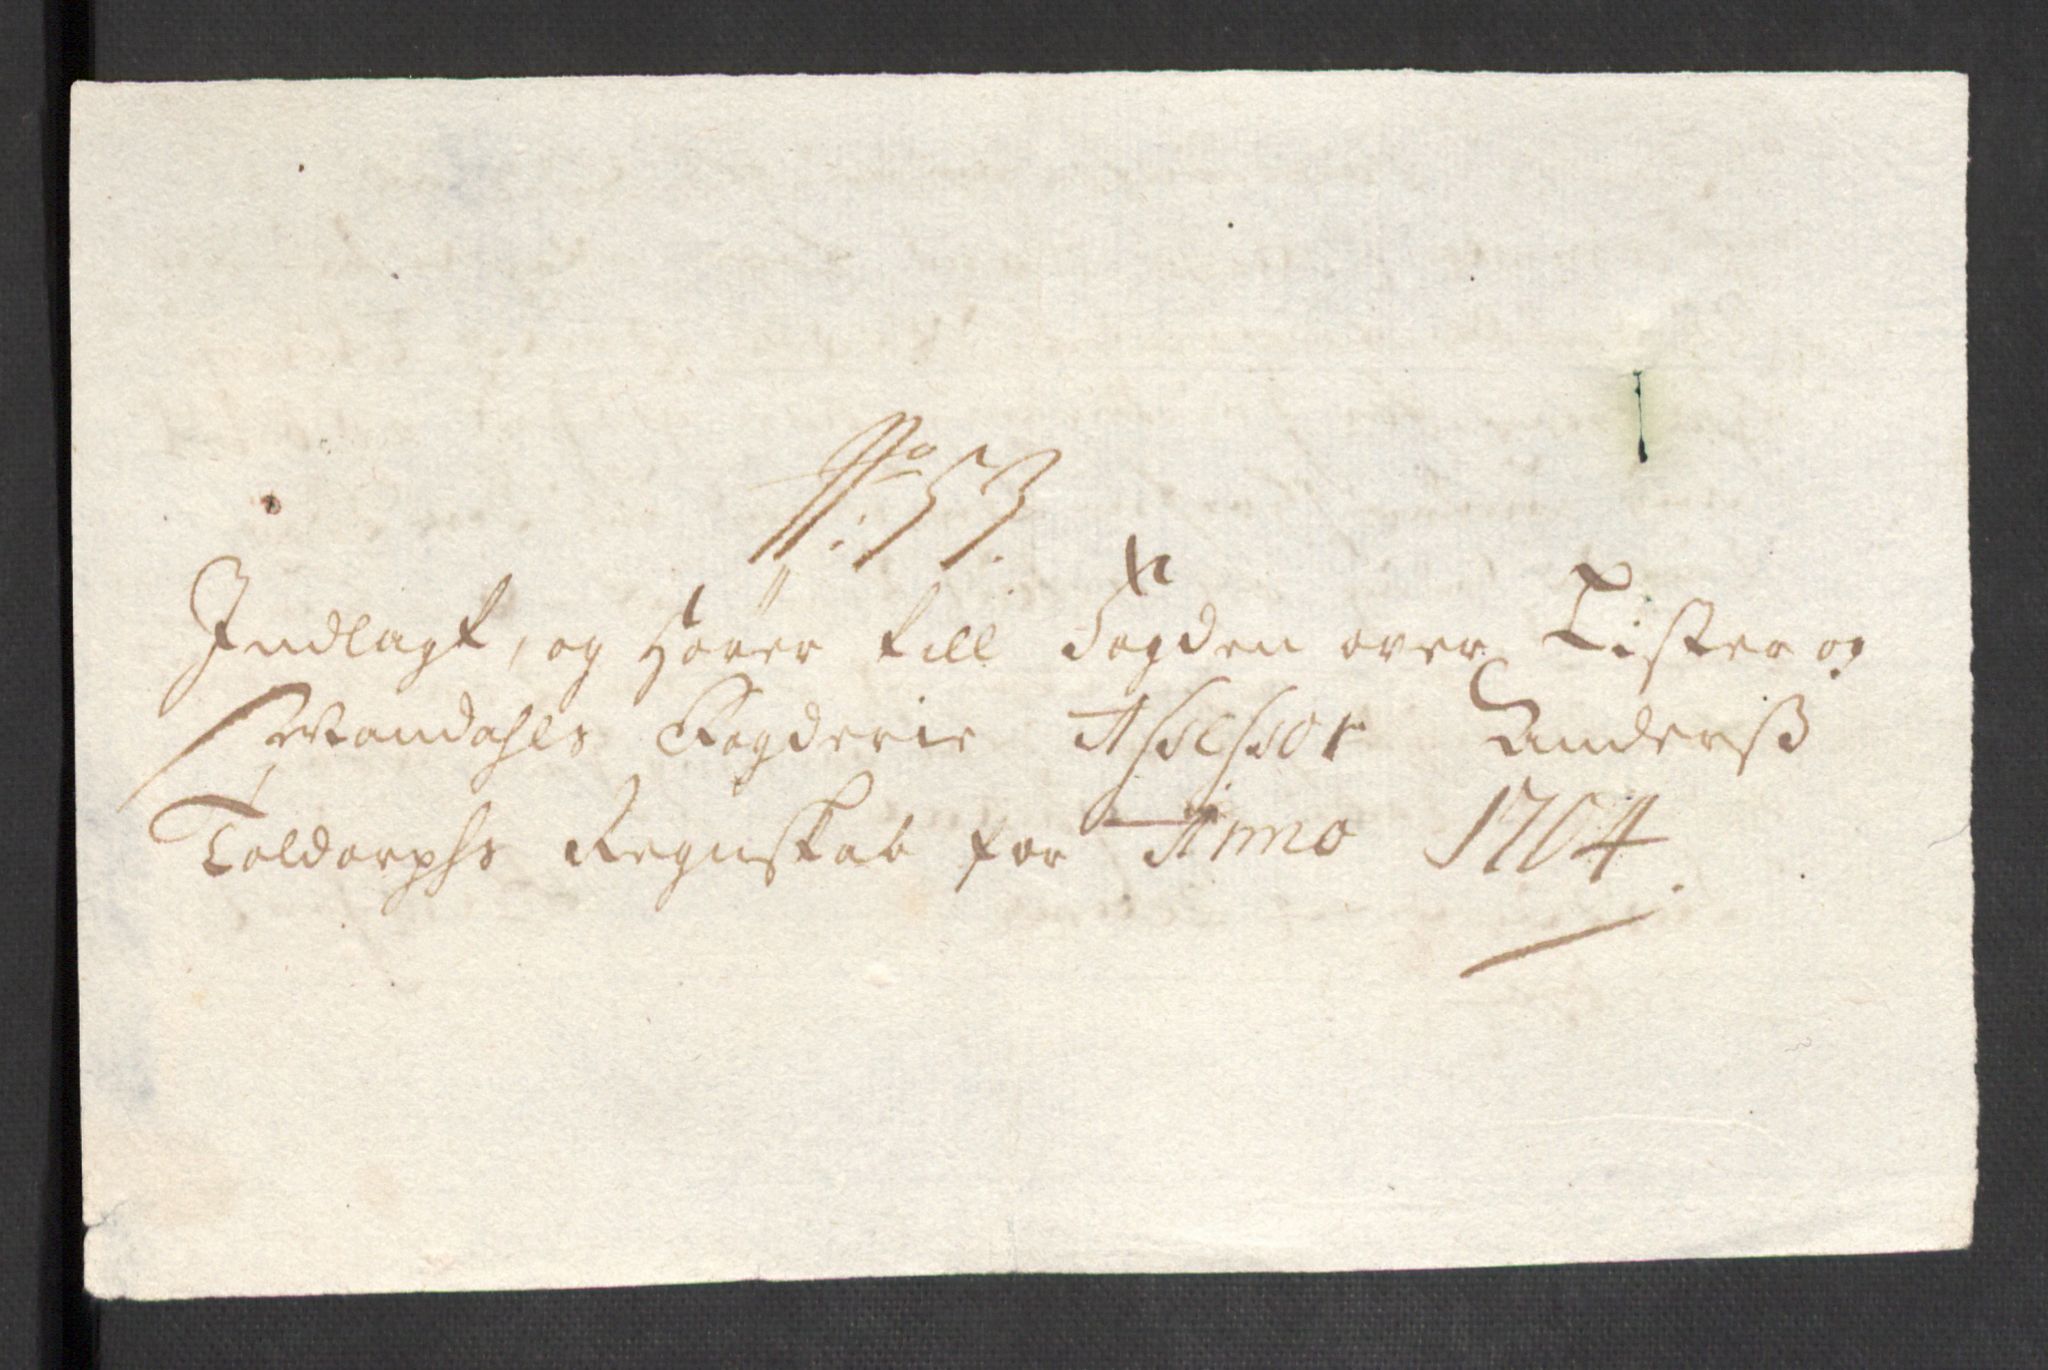 No: 53.
Indlagt, og Hører till Fogden over Lister og
Mandahls Fogderie Assessor Anderß
Toldorphs Regnskab for Anno 1704.